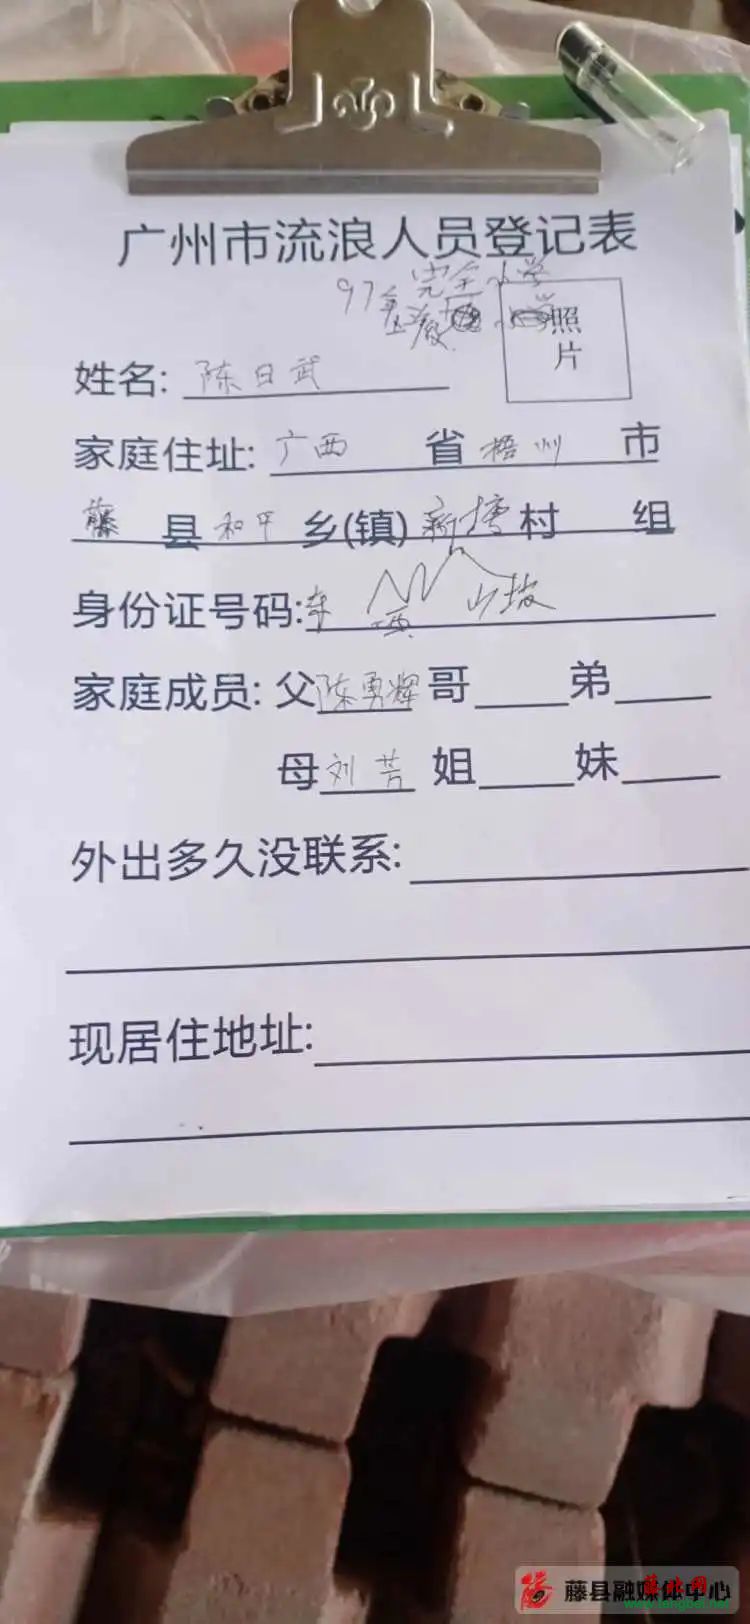 广州市流浪人员登记表
完全小学
97年
照片
姓名: 陈日武
家庭住址: 广西 省 梧州 市
藤 县 和平 乡(镇) 新塘 村 组
身份证号码:
山坡
家庭成员: 父 陈勇辉 哥 弟
母 刘芳 姐 妹
外出多久没联系:
现居住地址:
藤县融媒体中心
藤北网
www.tengbei.net